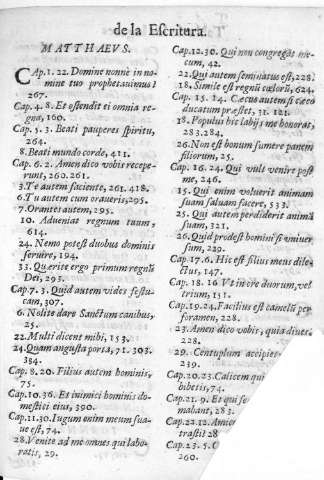 de la Escritura.
MATTHAEVS.
CAp. 1. 22. Domine nonnè in no-
mine tuo prophetauimus?
267.
Cap. 4. 8. Et ostendit ei omnia re-
gna, 160.
Cap. 5. 3. Beati pauperes spiritu,
264.
8. Beati mundo corde, 411.
Cap. 6. 2. Amen dico vobis recepe-
runt, 260.261.
3. Te autem faciente, 261. 418.
6. Tu autem cum oraueris, 295.
7. Orantes autem, 295.
10. Adueniat regnum tuum,
614.
24. Nemo potest duobus dominis
seruire, 194.
33. Quærite ergo primum regnũ
Dei, 293.
Cap. 7. 3. Quid autem vides festu-
cam, 307.
6. Nolite dare Sanctum canibus,
25.
22. Multi dicent mihi, 153.
24. Quam angusta porta, 71. 303.
334.
Cap. 8. 20. Filius autem hominis,
75.
Cap. 10.36. Et inimici hominis do-
mestici eius, 390.
Cap. 11.30. Iugum enim meum sua-
ue est, 74.
28. Venite ad me omnes qui labo-
ratis, 29.
Cap. 12.30. Qui non congregat me-
cum, 42.
22. Qui autem seminatus est, 228.
18. Simile est regnũ cœlorũ, 624.
Cap. 15. 14. Cæcus autem si cæco
ducatum præstet, 31. 121.
18. Populus hic labijs me honorat,
283.284.
26. Non est bonum sumere panem
filiorum, 25.
Cap. 16. 24. Qui vult venire post
me, 246.
15. Qui enim voluerit animam
suam saluam facere, 533.
25. Qui autem perdiderit animã
suam, 321.
26. Quid prodest homini si vniuer
sum, 229.
Cap. 17.6. Hic est filius meus dile-
ctus, 147.
Cap. 18. 16 Vt in ore duorum, vel
trium, 151.
Cap. 19.24. Facilius est camelũ per
foramen, 228.
23. Amen dico vobis, quia diues,
228.
29. Centuplum accipiet
239.
Cap. 20.23. Calicem qui
bibetis, 74.
Cap. 21. 9. Et qui se
mabant, 283.
Cap. 22.12. Amice
trasti? 28
Cap. 23. 5. O
260.